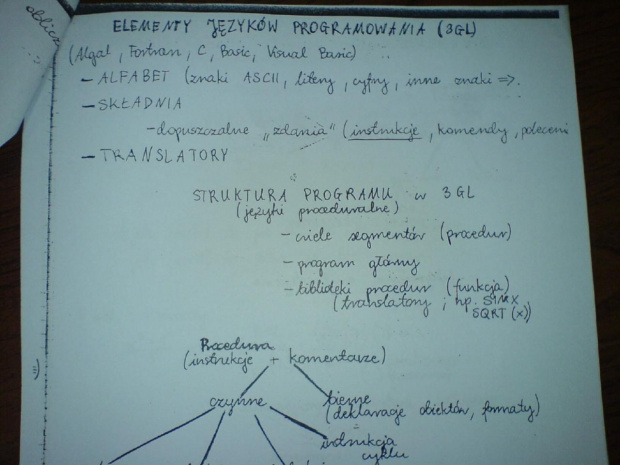 oblicz
ELEMENTY JĘZYKÓW PROGRAMOWANIA (3GL)
(Algol, Fortran, C, Basic, Visual Basic)
- ALFABET (znaki ASCII, litery, cyfry, inne znaki =>.
- SKŁADNIA
- dopuszczalne „zdania” (instrukcje, komendy, poleceni
- TRANSLATORY
STRUKTURA PROGRAMU w 3GL
(języki proceduralne)
- wiele segmentów (procedur)
- program główny
- biblioteki procedur (funkcja)
(translatory, np. SINX
SQRT(x))
Procedura
(instrukcje + komentarze)
czynne
bierne
(deklaracje obiektów, formaty)
instrukcja
cyklu